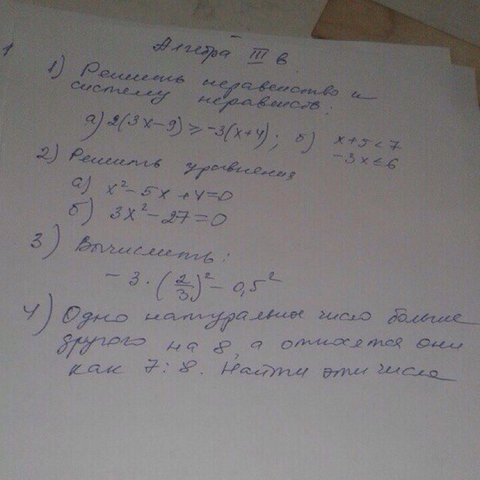 Алгебра III в.
1) Решить неравенство и
систему неравенств:
а) 2(3x-9) ≥ -3(x+4); б) x+5<7
-3x≤6
2) Решить уравнения
а) x²-5x+4=0
б) 3x²-27=0
3) Вычислить:
-3·(2/3)²-0,5²
4) Одно натуральное число больше
другого на 8, а относятся они
как 7:8. Найти эти числа